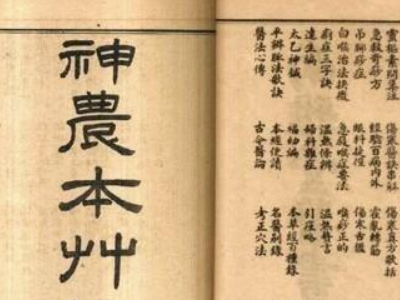 靈樞素問集注
急救奇痧方
吊腳痧症
白喉治法抉微
痢症三字訣
達生編
太乙神鍼
平辨脈法歌訣
醫法心傳
傷寒醫訣串解
經驗百病內外
眼科捷徑
急救喉症要法
婦科雜症
福幼編
本經便讀
古今醫論
傷寒真方歌括
霍亂轉筋
傷寒舌鑑
喉痧正的
溫熱贅言
引痘略
本草經百種錄
名醫別錄
考正穴法
神農本艸